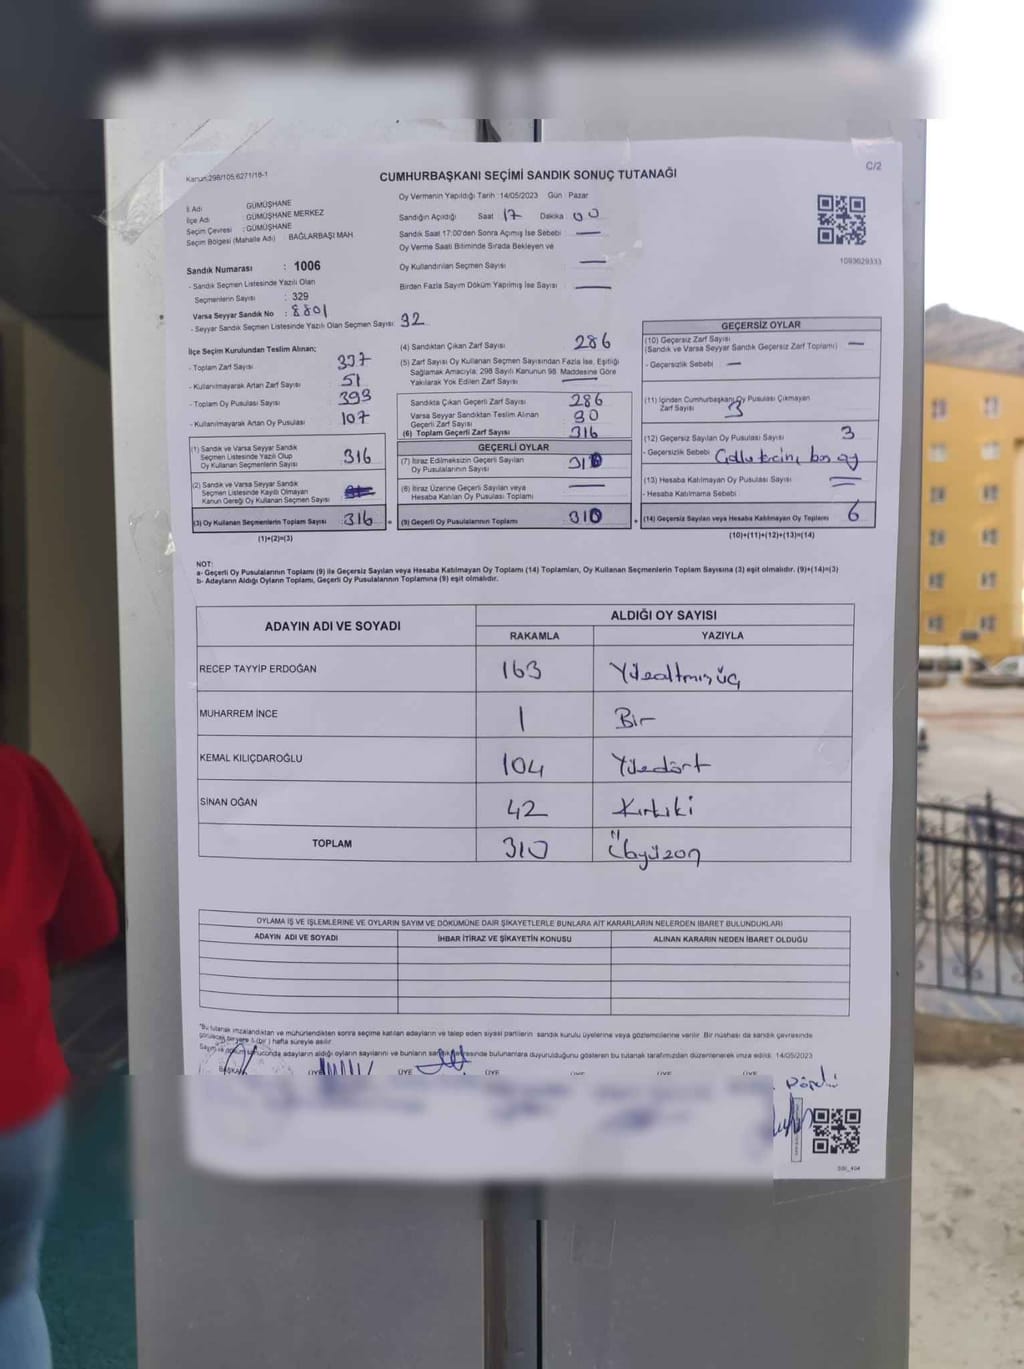 Kanun:298/105;6271/18-1
C/2
CUMHURBAŞKANI SEÇİMİ SANDIK SONUÇ TUTANAĞI
İl Adı GÜMÜŞHANE
İlçe Adı GÜMÜŞHANE MERKEZ
Seçim Çevresi : GÜMÜŞHANE
Seçim Bölgesi (Mahalle Adı) BAĞLARBAŞI MAH.
Oy Vermenin Yapıldığı Tarih :14/05/2023 Gün : Pazar
Sandığın Açıldığı Saat 17 Dakika 00
Sandık Saat 17:00'den Sonra Açımış İse Sebebi —
Oy Verme Saati Bitiminde Sırada Bekleyen ve
Oy Kullandırılan Seçmen Sayısı —
Birden Fazla Sayım Döküm Yapılmış İse Sayısı —
1093629333
Sandık Numarası : 1006
- Sandık Seçmen Listesinde Yazılı Olan
Seçmenlerin Sayısı : 329
Varsa Seyyar Sandık No : 8801
- Seyyar Sandık Seçmen Listesinde Yazılı Olan Seçmen Sayısı: 32
İlçe Seçim Kurulundan Teslim Alınan;
- Toplam Zarf Sayısı
- Kullanılmayarak Artan Zarf Sayısı 51
- Toplam Oy Pusulası Sayısı 393
- Kullanılmayarak Artan Oy Pusulası 107
(1) Sandık ve Varsa Seyyar Sandık
Seçmen Listesinde Yazılı Olup
Oy Kullanan Seçmenlerin Sayısı 316
(2) Sandık ve Varsa Seyyar Sandık
Seçmen Listesinde Kayıtlı Olmayan
Kanun Gereği Oy Kullanan Seçmen Sayısı
(3) Oy Kullanan Seçmenlerin Toplam Sayısı 316
(1)+(2)=(3)
(4) Sandıktan Çıkan Zarf Sayısı 286
(5) Zarf Sayısı Oy Kullanan Seçmen Sayısından Fazla İse, Eşitliği
Sağlamak Amacıyla; 298 Sayılı Kanunun 98. Maddesine Göre
Yakılarak Yok Edilen Zarf Sayısı —
Sandıkta Çıkan Geçerli Zarf Sayısı 286
Varsa Seyyar Sandıktan Teslim Alınan
Geçerli Zarf Sayısı 30
(6) Toplam Geçerli Zarf Sayısı 316
GEÇERLİ OYLAR
(7) İtiraz Edilmeksizin Geçerli Sayılan
Oy Pusulalarının Sayısı 310
(8) İtiraz Üzerine Geçerli Sayılan veya
Hesaba Katılan Oy Pusulası Toplamı —
(9) Geçerli Oy Pusulalarının Toplamı 310
GEÇERSİZ OYLAR
(10) Geçersiz Zarf Sayısı
(Sandık ve Varsa Seyyar Sandık Geçersiz Zarf Toplamı) —
- Geçersizlik Sebebi —
(11) İçinden Cumhurbaşkanı Oy Pusulası Çıkmayan
Zarf Sayısı 3
(12) Geçersiz Sayılan Oy Pusulası Sayısı 3
- Geçersizlik Sebebi
(13) Hesaba Katılmayan Oy Pusulası Sayısı —
- Hesaba Katılmama Sebebi —
(14) Geçersiz Sayılan veya Hesaba Katılmayan Oy Toplamı 6
(10)+(11)+(12)+(13)=(14)
NOT:
a- Geçerli Oy Pusulalarının Toplamı (9) ile Geçersiz Sayılan veya Hesaba Katılmayan Oy Toplamı (14) Toplamları, Oy Kullanan Seçmenlerin Toplam Sayısına (3) eşit olmalıdır. (9)+(14)=(3)
b- Adayların Aldığı Oyların Toplamı, Geçerli Oy Pusulalarının Toplamına (9) eşit olmalıdır.
ADAYIN ADI VE SOYADI ALDIĞI OY SAYISI
RAKAMLA YAZIYLA
RECEP TAYYİP ERDOĞAN 163 Yüzaltmışüç
MUHARREM İNCE 1 Bir
KEMAL KILIÇDAROĞLU 104 Yüzdört
SİNAN OĞAN 42 Kırkiki
TOPLAM 310 Üçyüzon
OYLAMA İŞ VE İŞLEMLERİNE VE OYLARIN SAYIM VE DÖKÜMÜNE DAİR ŞİKAYETLERLE BUNLARA AİT KARARLARIN NELERDEN İBARET BULUNDUKLARI
ADAYIN ADI VE SOYADI İHBAR İTİRAZ VE ŞİKAYETİN KONUSU ALINAN KARARIN NEDEN İBARET OLDUĞU
"Bu tutanak imzalandıktan ve mühürlendikten sonra seçime katılan adayların ve talep eden siyasi partilerin sandık kurulu üyelerine veya gözlemcilerine verilir. Bir nüshası da sandık çevresinde
görülecek bir yere 1 (bir) hafta süreyle asılır.
sonucunda adayların aldığı oyların sayılarını ve bunların bulunanlara duyurulduğunu gösteren bu tutanak tarafımızdan düzenlenerek imza edildi. 14/05/2023
BAŞKAN ÜYE ÜYE ÜYE ÜYE ÜYE ÜYE